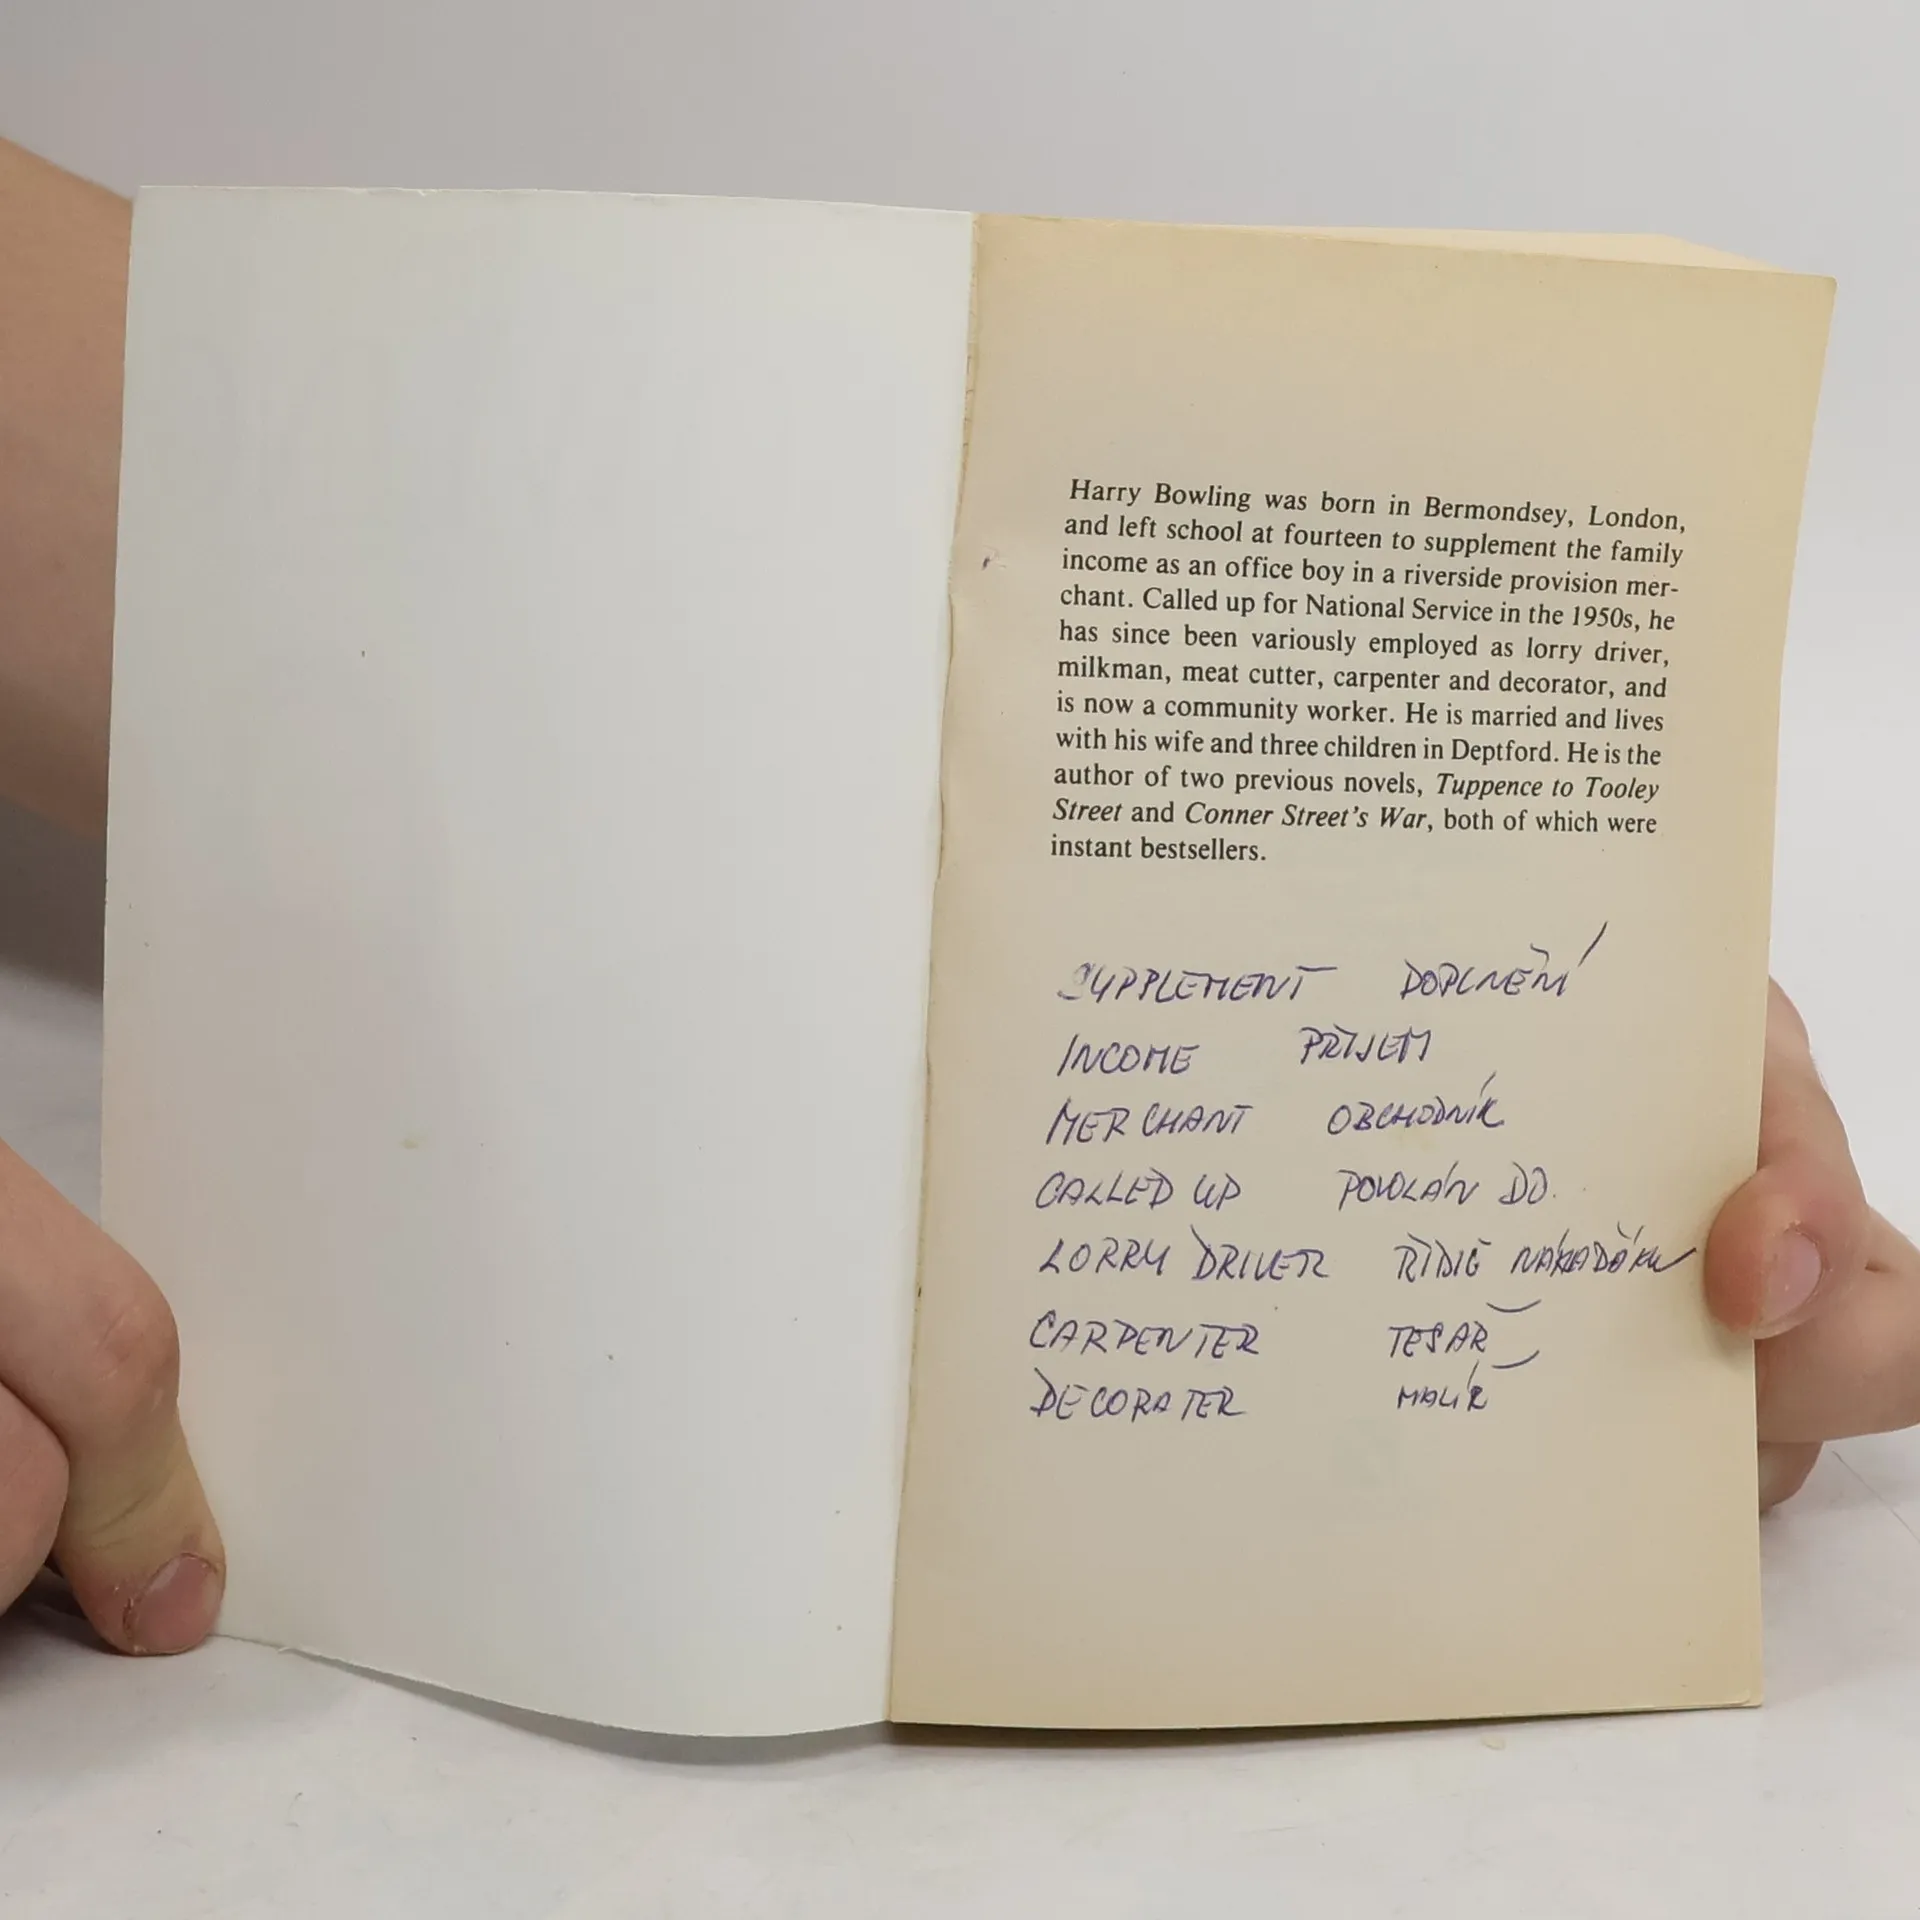 Harry Bowling was born in Bermondsey, London,
and left school at fourteen to supplement the family
income as an office boy in a riverside provision mer-
chant. Called up for National Service in the 1950s, he
has since been variously employed as lorry driver,
milkman, meat cutter, carpenter and decorator, and
is now a community worker. He is married and lives
with his wife and three children in Deptford. He is the
author of two previous novels, Tuppence to Tooley
Street and Conner Street's War, both of which were
instant bestsellers.
SUPPLEMENT DOPLNĚNÍ
INCOME PŘÍJEM
MERCHANT OBCHODNÍK
CALLED UP POVOLÁN DO.
LORRY DRIVER ŘIDIČ
CARPENTER TESAŘ
DECORATER MALÍŘ